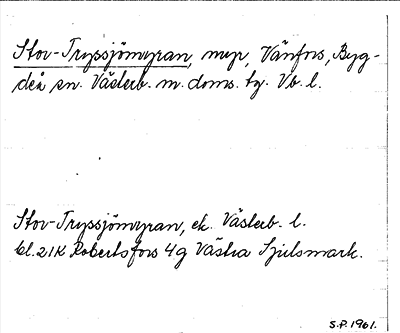 Stor-Tryssjömyran, myr, Vänfors, Byg-
deå sn. Västerb. m. doms. tg. Vb. l.
Stor-Tryssjömyran, ek. Västerb. l.
bl. 21K Robertsfors 4g Västra Sjulsmark.
S.P. 1961.